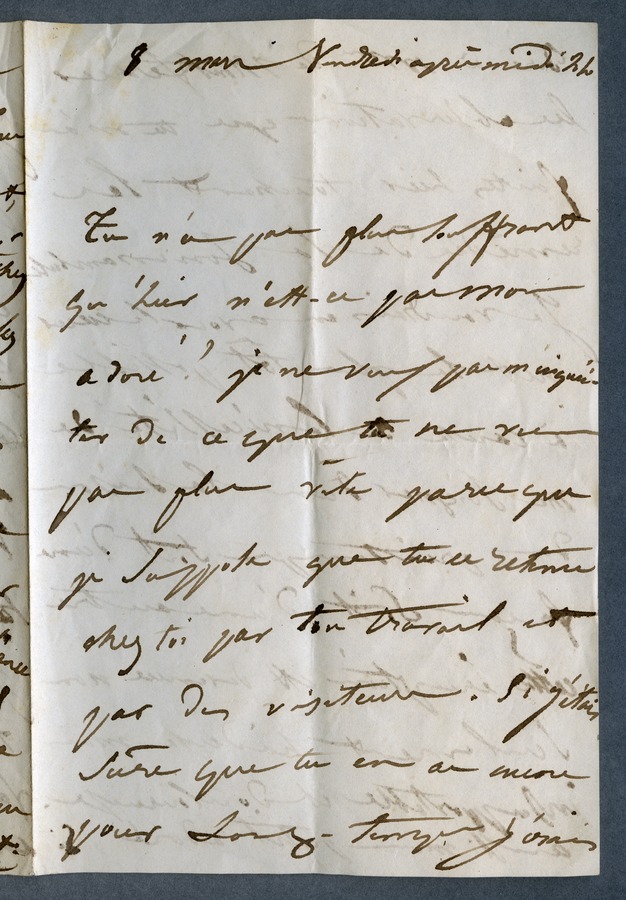 8 mars Vendredi après midi 2h
Tu n'es pas plus souffrant
qu'hier n'est-ce pas mon
adoré ? je ne veux pas m'inquié-
ter de ce que tu ne viens
pas plus vite parce que
je suppose que tu es retenu
chez toi par ton travail et
par des visiteurs. Si j'étais
sûre que tu en as encore
pour longtemps j'irais